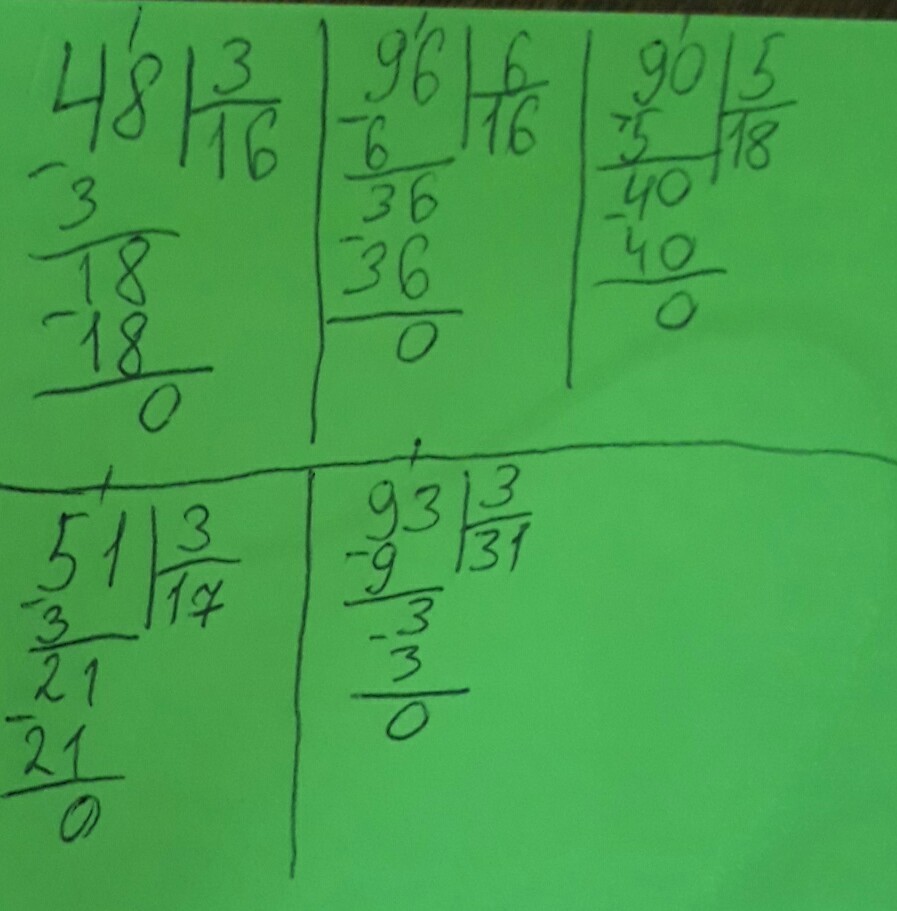 48 3
16
- 3
18
- 18
0
96 6
- 6 16
36
- 36
0
90 5
- 5 18
40
- 40
0
51 3
- 3 17
21
- 21
0
93 3
- 9 31
3
- 3
0